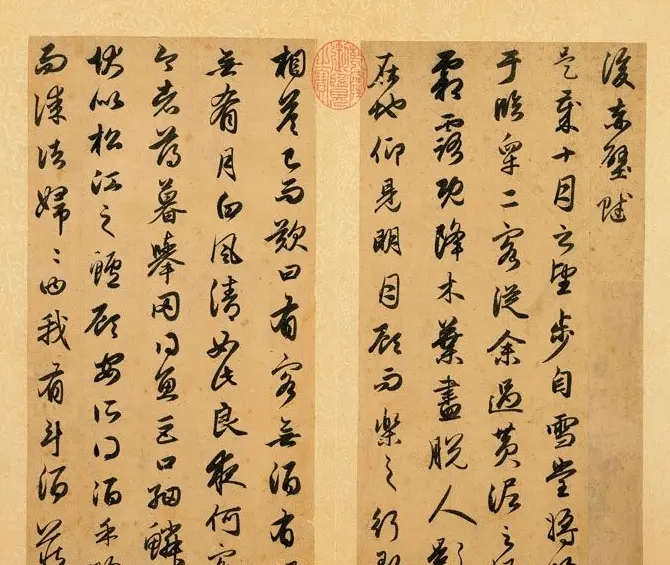 後赤壁賦
是歲十月之望步自雪堂將
于臨皋二客從余過黃泥之
霜露既降木葉盡脫人影
在地仰見明月顧而樂之行
相答已而歎曰有客無酒有
無肴月白風清如此良夜何
今者薄暮舉网得魚巨口細鱗
狀似松江之鱸顧安所得酒乎
而謀諸婦〻曰我有斗酒藏